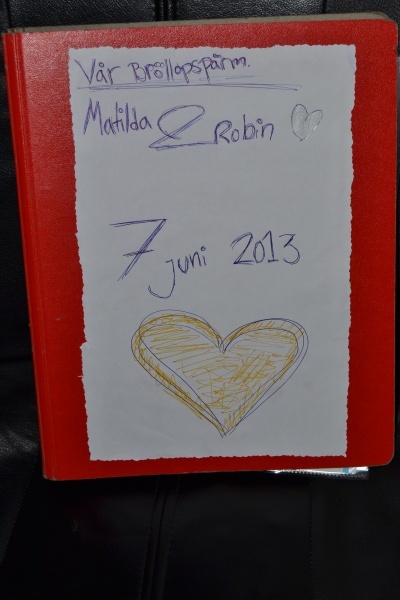 Vår Bröllopspärm.
Matilda & Robin
7 juni 2013